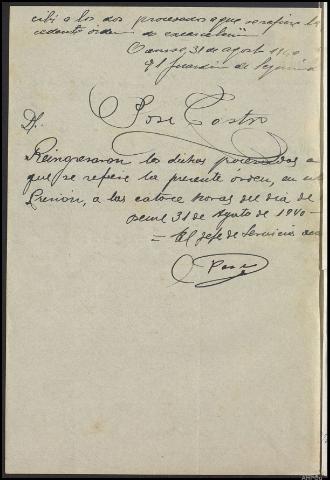 cibi a los dos procesados a que se refiere la
cedente órden de excarcelación
31 de agosto 1940
El Guardian de Seguridad
José Castro
D/.
Reingresaron los dichos procesados a
que se refiere la presente órden, en
Prisión, a las catorce horas del día de
31 de Agosto de 1940-
= El Jefe de Servicios